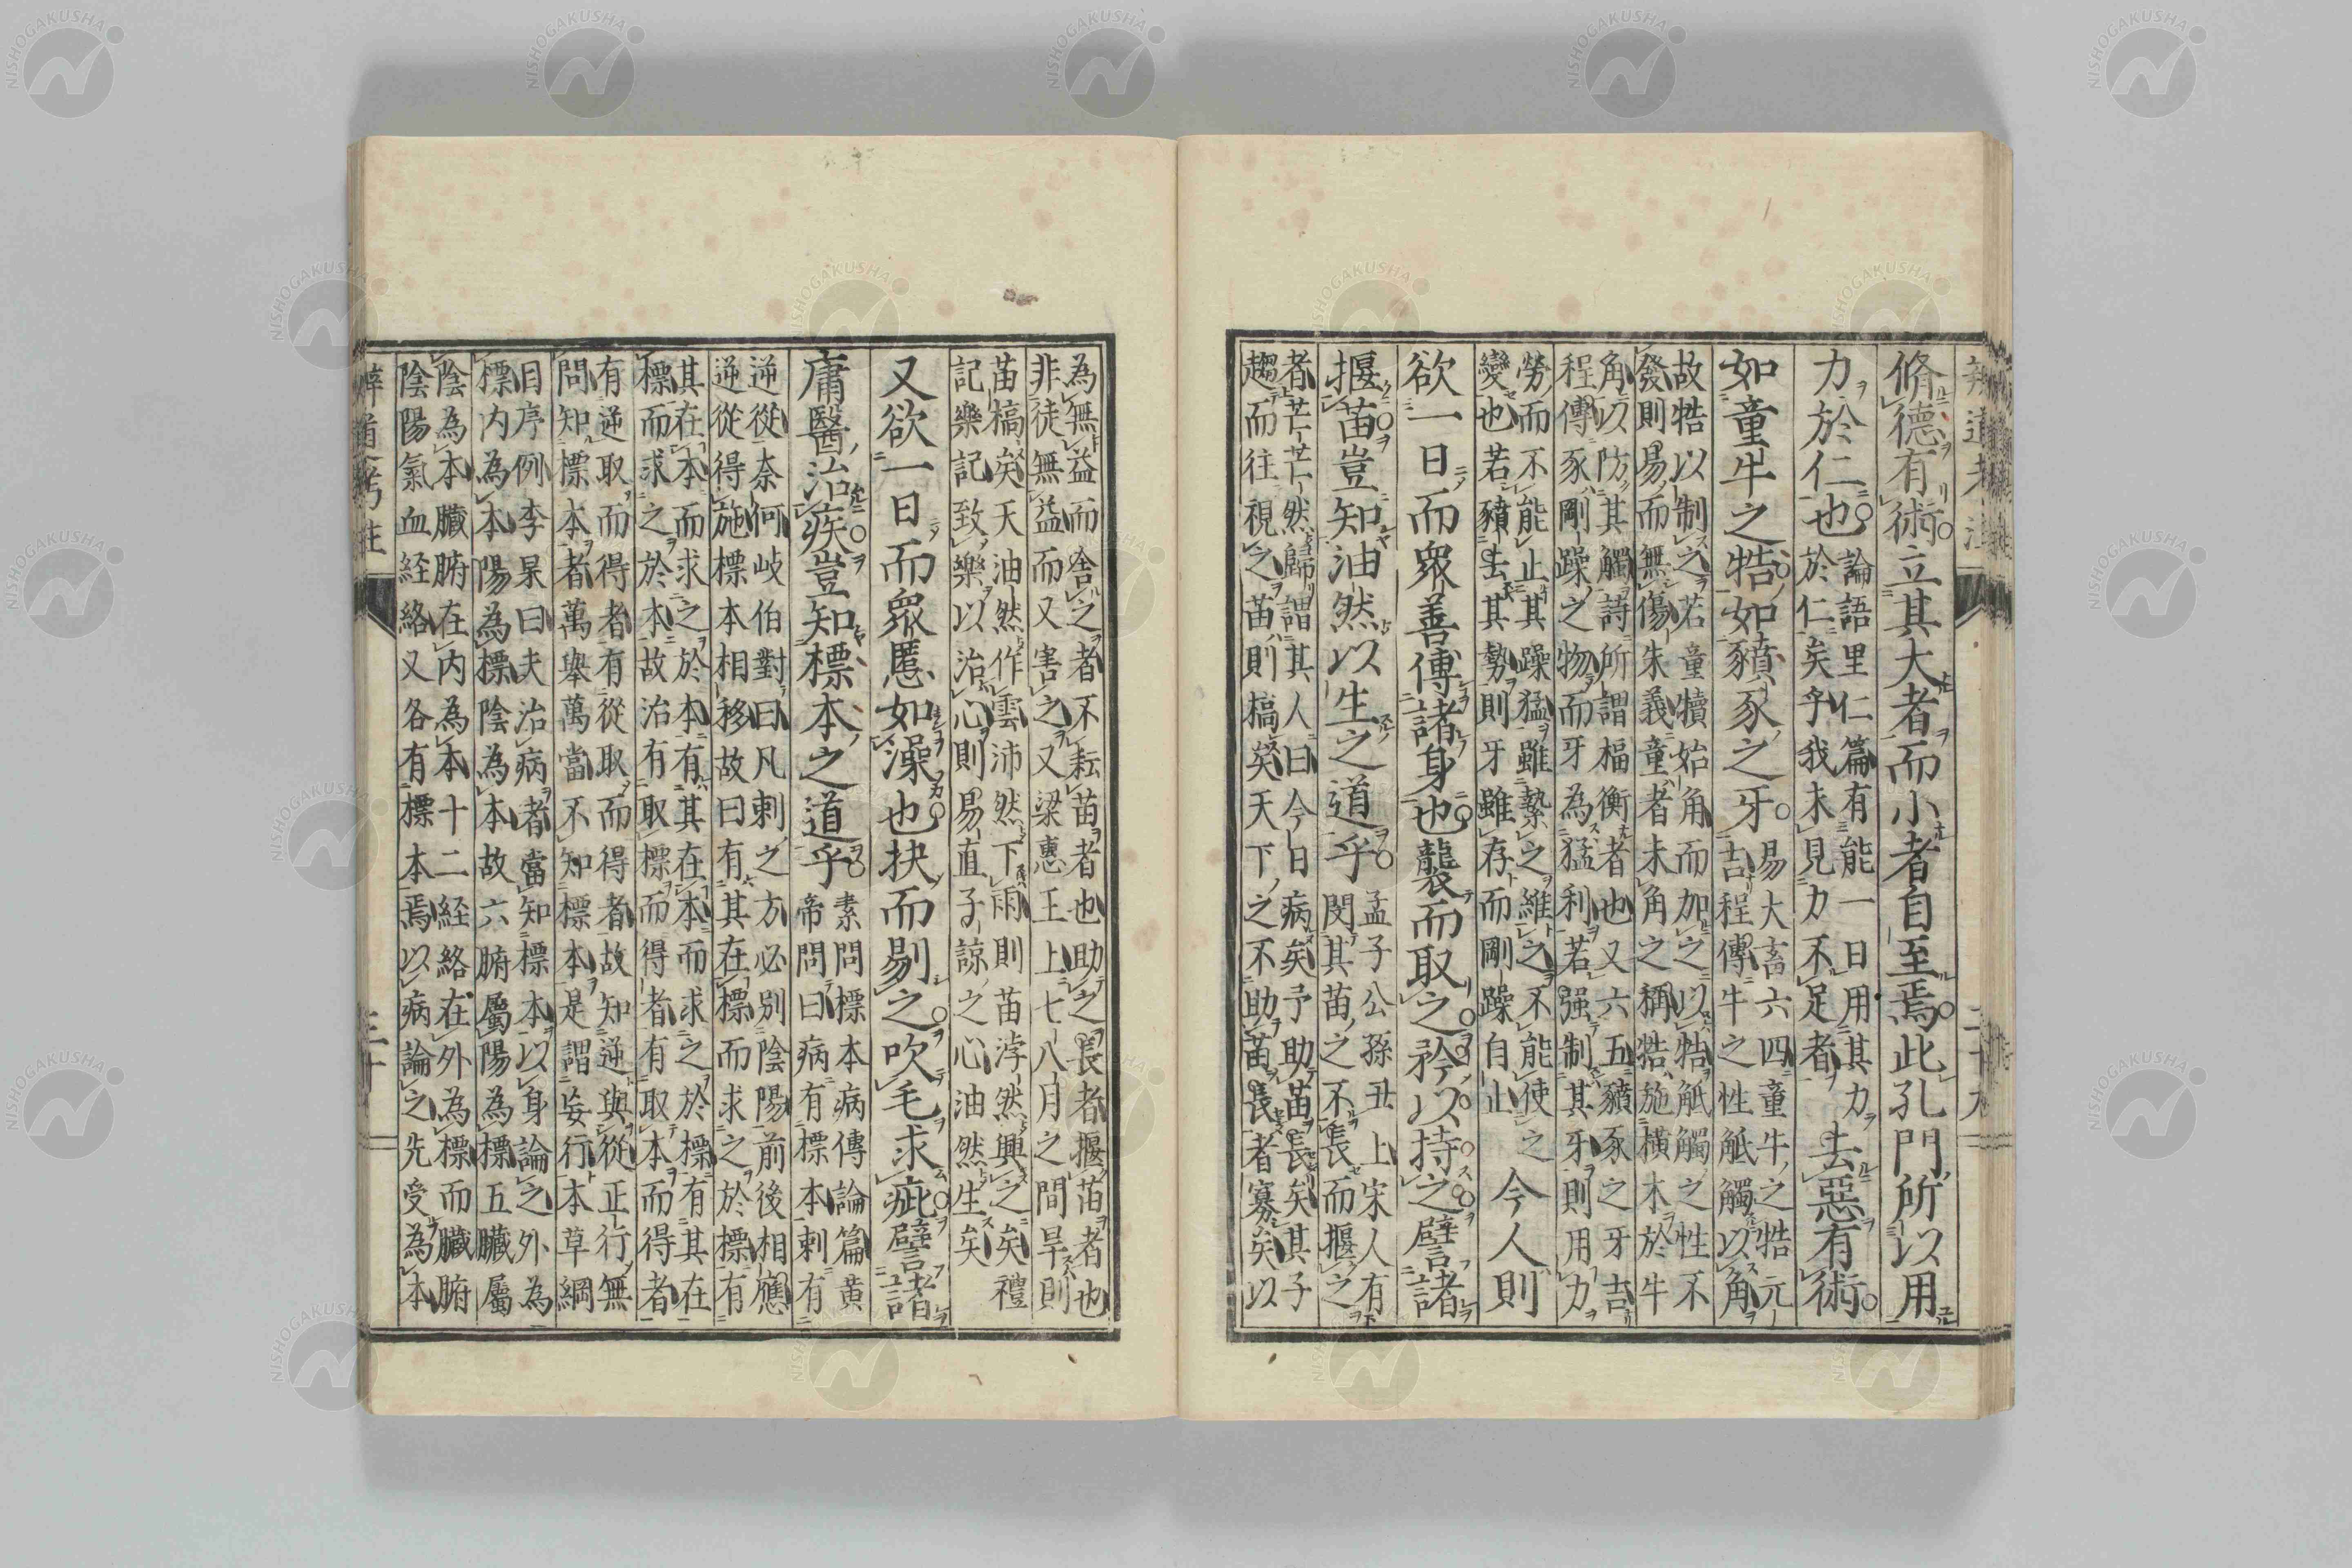 脩德有術立其大者而小者自至焉此孔門所以用
力於仁也
論語里仁篇有能一日用其力
於仁矣乎我未見力不足者
去惡有術
如童牛之牿如豶豕之牙
易大畜六四童牛之牿元
吉程傳牛之性觝觸以角
故牿以制之若童犢始角而加之以牿觝觸之性不
發則易而無傷朱義童者未角之稱牿施橫木於牛
角以防其觸詩所謂楅衡者也又六五豶豕之牙吉
程傳豕剛躁之物而牙為猛利若强制其牙則用力
勞而不能止其躁猛雖縶之維之不能使之
變也若豶去其勢則牙雖存而剛躁自止
今人則
欲一日而衆善傅諸身也襲而取之矜以持之譬諸
揠苗豈知油然以生之道乎
孟子公孫丑上宋人有
閔其苗之不長而揠之
者芒芒然歸謂其人曰今日病矣予助苗長矣其子
趨而往視之苗則槁矣天下之不助苗長者寡矣以
辨道考注
二十九
為無益而舍之者不耘苗者也助之長者揠苗者也
非徒無益而又害之又梁惠王上七八月之間旱則
苗槁矣天油然作雲沛然下雨則苗浡然興之矣禮
記樂記致樂以治心則易直子諒之心油然生矣
又欲一日而衆慝如澡也抉而剔之吹毛求疵譬諸
庸醫治疾豈知標本之道乎
素問標本病傳論篇黃
帝問曰病有標本刺有
逆從奈何岐伯對曰凡刺之方必別陰陽前後相應
逆從得施標本相移故曰有其在標而求之於標有
其在本而求之於本有其在本而求之於標有其在
標而求之於本故治有取標而得者有取本而得者
有逆取而得者有從取而得者故知逆與從正行無
問知標本者萬舉萬當不知標本是謂妄行本草綱
目序例李杲曰夫治病者當知標本以身論之外為
標內為本陽為標陰為本故六腑屬陽為標五臟屬
陰為本臟腑在內為本十二経絡在外為標而臟腑
陰陽氣血経絡又各有標本焉以病論之先受為本
辨道考注
三十